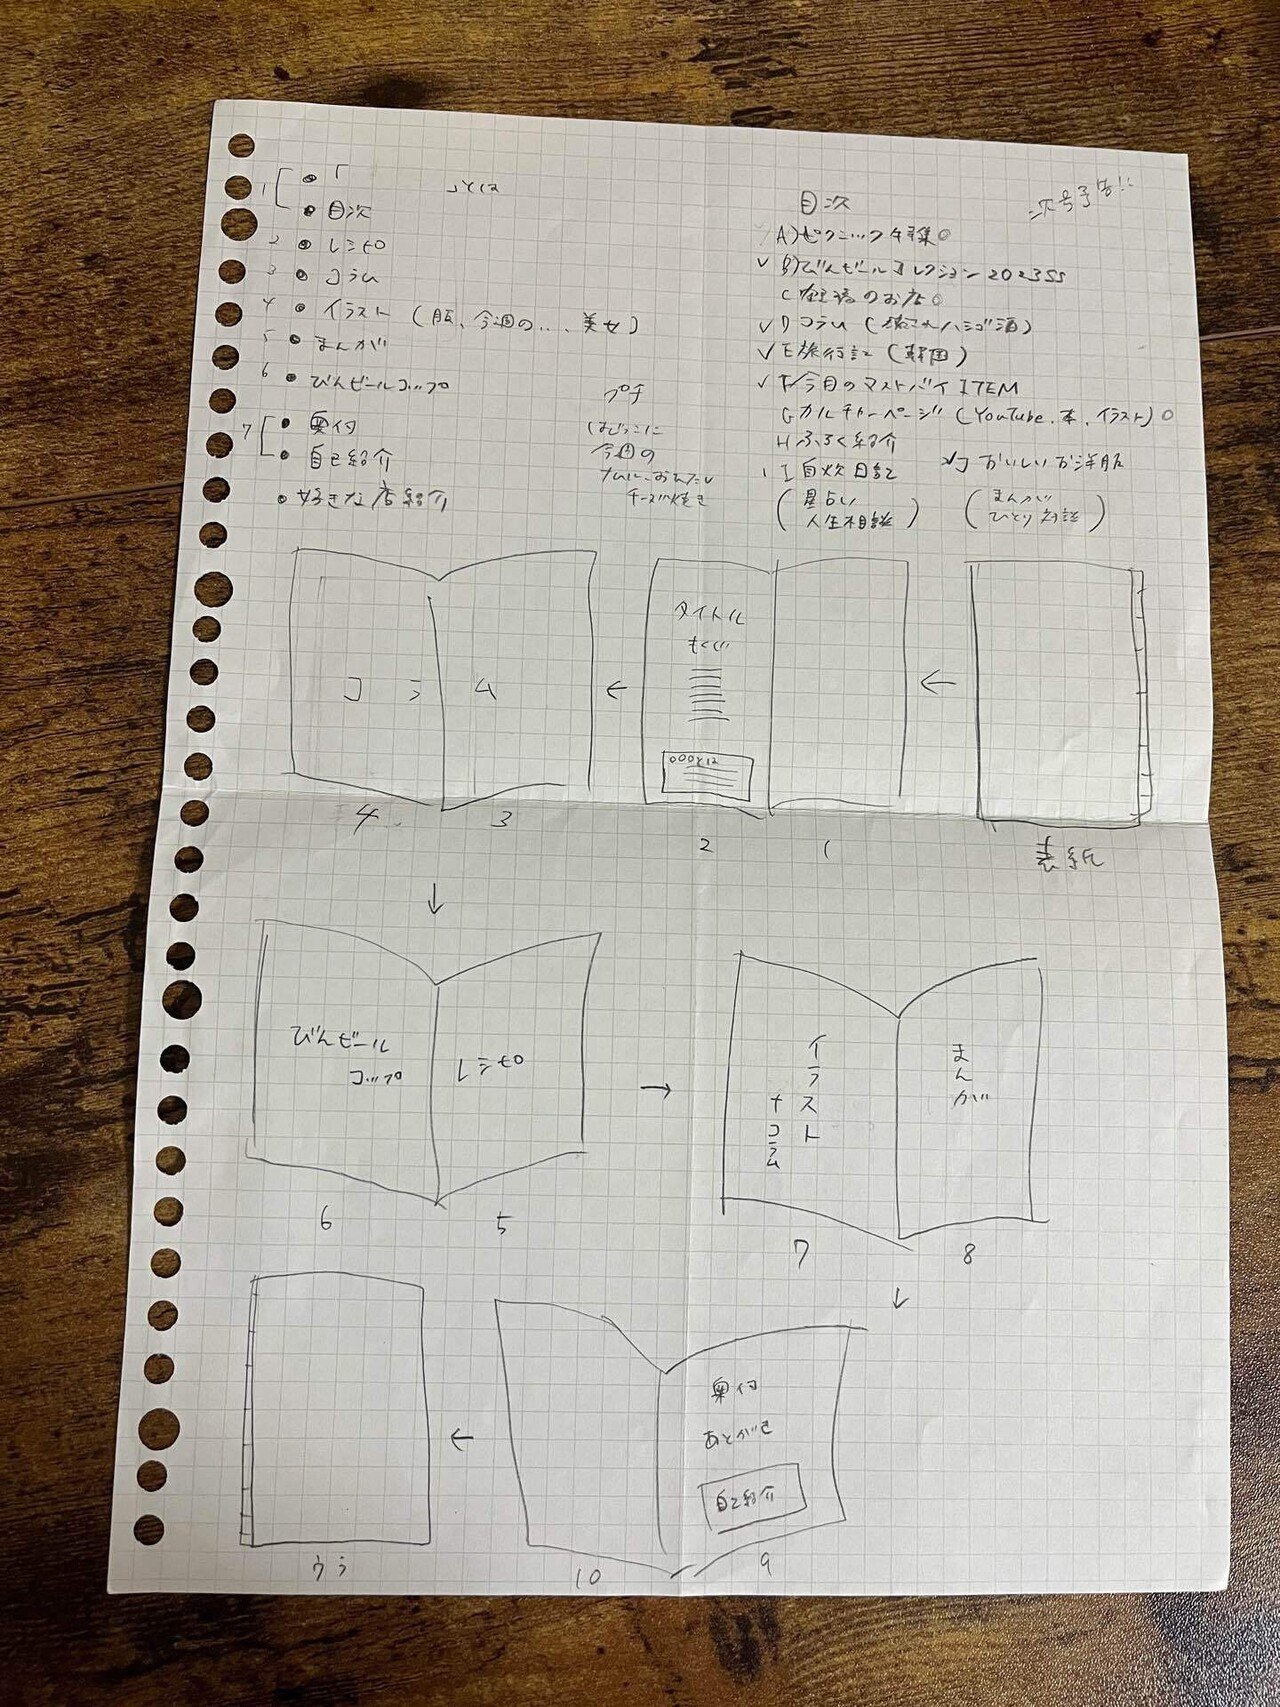 1 「 」とは
目次
2 レシピ
3 コラム
4 イラスト (服、今週の...、美女)
5 まんが
6 びんビールコップ
7 奥付
自己紹介
好きな店紹介
プチ
はじっこに
今週の
チーズ焼き
目次
次号予告!!
A)ピクニック特集◎
✓ B)びんビールコレクション2023SS
C のお店○
✓ D コラム (ハシゴ酒)
✓ E 旅行記 (韓国)
✓ F 今月のマストバイITEM
G カルチャーページ (YouTube、本、イラスト)○
H ふろく紹介
I 自炊日記
✓J おいしいお洋服
(星占い
人生相談)
(まんが
ひとり対談)
タイトル
もくじ
○○○とは
コラム
4 3 2 1
表紙
びんビール
コップ
レシピ
6 5
イラスト
+コラム
まんが
7 8
奥付
あとがき
自己紹介
ウラ
10 9